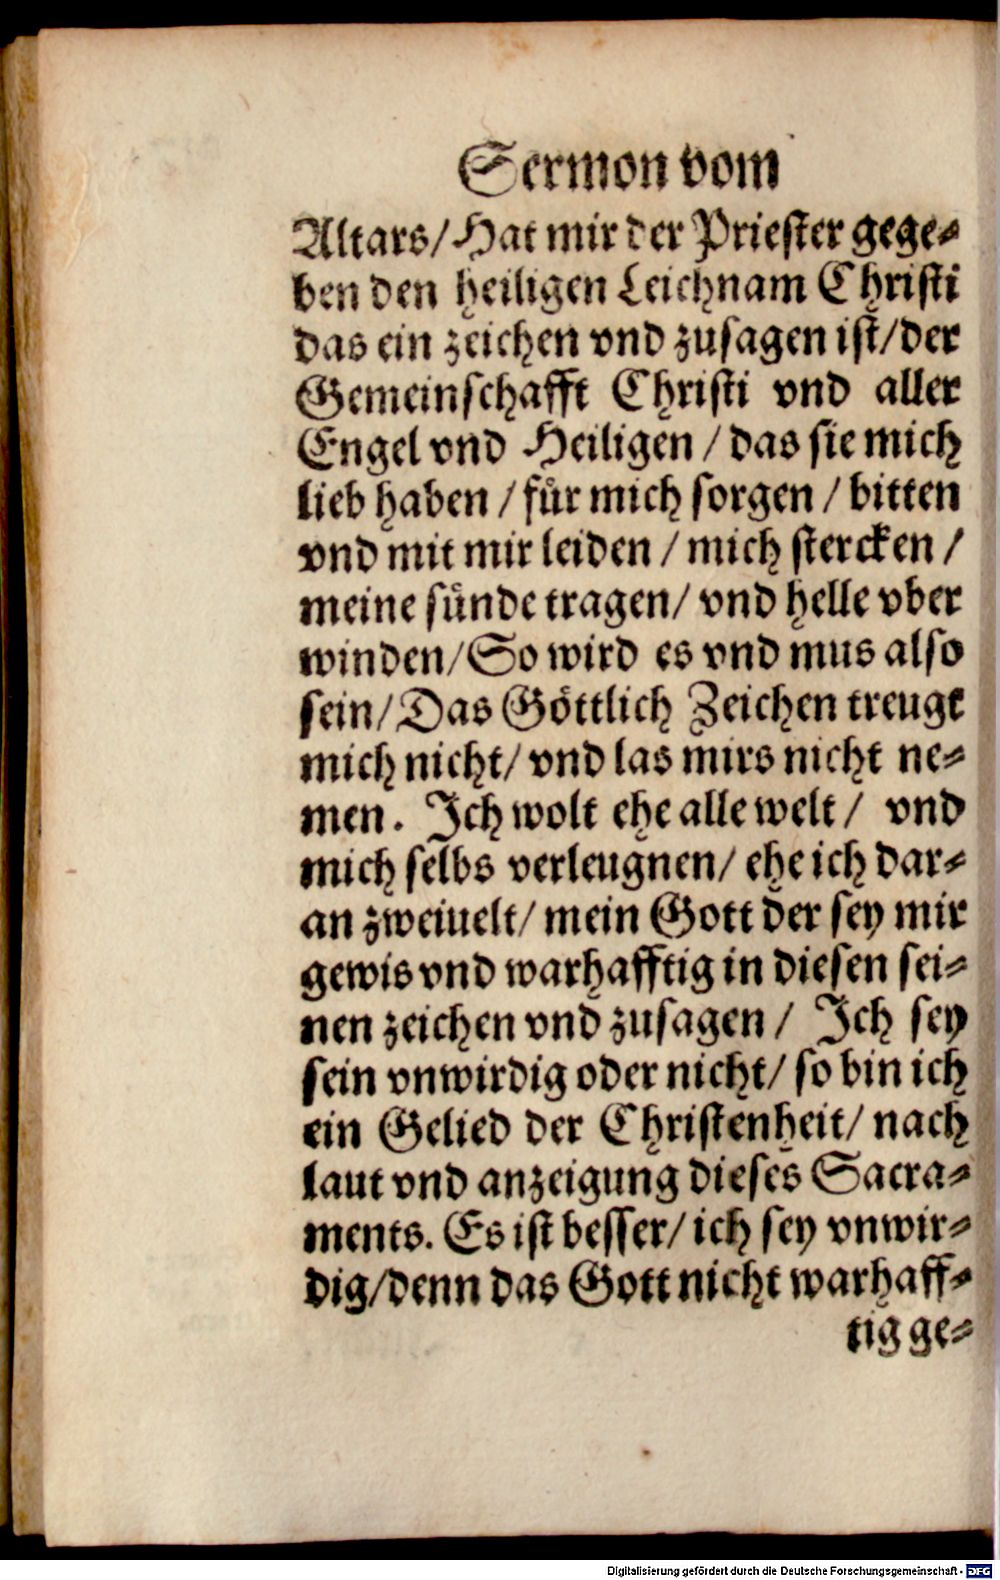 Sermon vom
Altars/Hat mir der Priester gege⸗
ben den heiligen Leichnam Christi
das ein zeichen vnd zusagen ist/der
Gemeinschafft Christi vnd aller
Engel vnd Heiligen / das sie mich
lieb haben / für mich sorgen / bitten
vnd mit mir leiden / mich stercken /
meine sünde tragen/ vnd helle vber
winden/So wird es vnd mus also
sein/Das Göttlich Zeichen treugt
mich nicht/ vnd las mirs nicht ne⸗
men. Ich wolt ehe alle welt / vnd
mich selbs verleugnen/ ehe ich dar⸗
an zweiuelt/ mein Gott der sey mir
gewis vnd warhafftig in diesen sei⸗
nen zeichen vnd zusagen / Ich sey
sein vnwirdig oder nicht/ so bin ich
ein Gelied der Christenheit/ nach
laut vnd anzeigung dieses Sacra⸗
ments. Es ist besser/ ich sey vnwir⸗
dig/denn das Gott nicht warhaff⸗
tig ge⸗
Digitalisierung gefördert durch die Deutsche Forschungsgemeinschaft - DFG